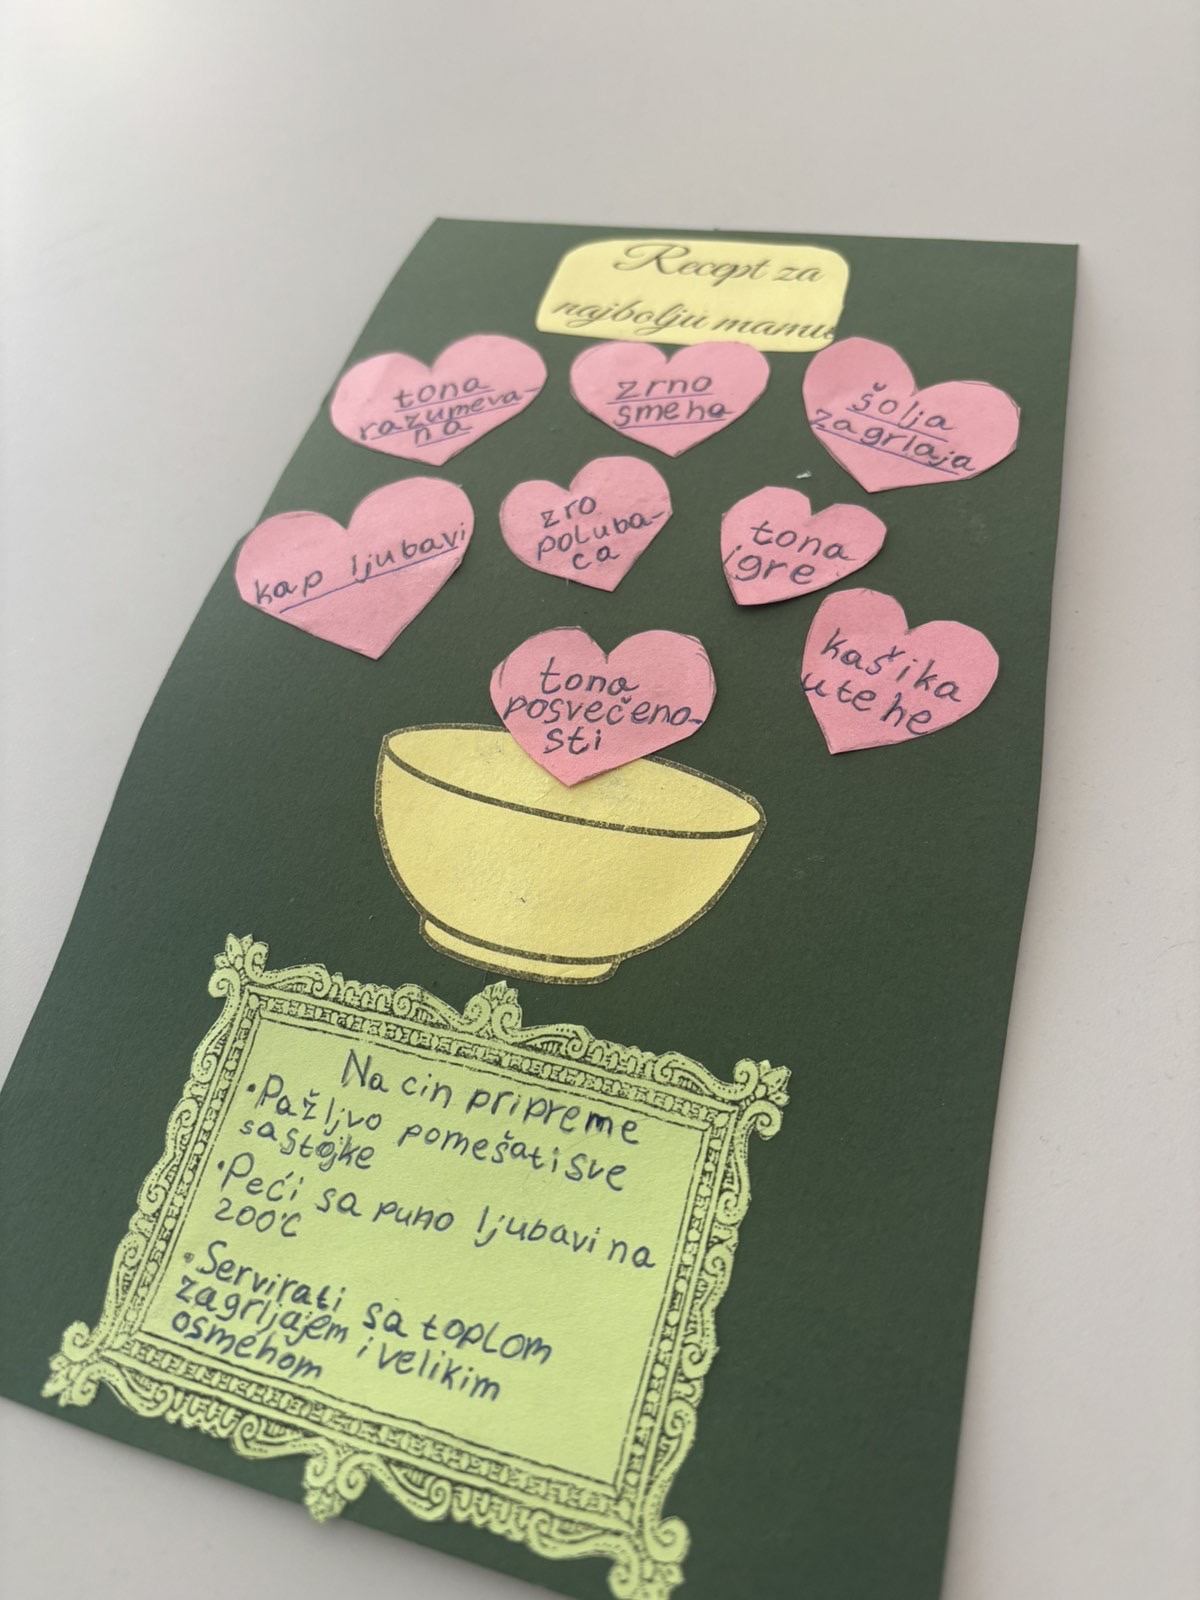 Recept za
najbolju mamu
tona
razumeva-
na
zrno
smeha
šolja
zagrlaja
kap ljubavi
zro
poluba-
ca
tona
igre
kašika
utehe
tona
posvečeno-
sti
Nacin pripreme
•Pažljvo pomešati sve
sastojke
•Peći sa puno ljubavi na
200°C
•Servirati sa toplom
zagrljajem i velikim
osmehom